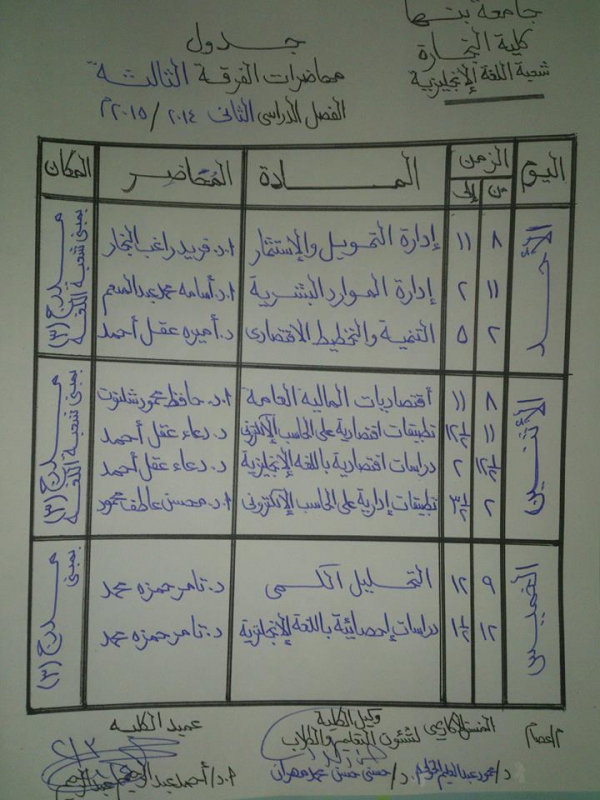 جامعة بنها
كلية التجارة
شعبة اللغة الإنجليزية
جدول
محاضرات الفرقة الثالثة
الفصل الدراسى الثانى ٢٠١٤ / ٢٠١٥م
اليوم الزمن المادة المحاضر المكان
من إلى
الأحد ٨ ١١ إدارة التمويل والإستثمار ا.د. فريد راغب النجار مدرج (٣) بمبنى شعبة اللغة
١١ ٢ إدارة الموارد البشرية ا.د. أسامه محمد عبدالمنعم
٢ ٥ التنمية والتخطيط الاقتصادى د. أميره عقل أحمد
الأثنين ٨ ١١ أقتصاديات المالية العامة ا.د. حافظ محمود شلتوت مدرج (٣) بمبنى شعبة اللغة
١١ ١٢½ تطبيقات اقتصادية على الحاسب الإلكترونى د. دعاء عقل أحمد
١٢½ ٢ دراسات اقتصادية باللغة الإنجليزية د. دعاء عقل أحمد
٢ ٣½ تطبيقات إدارية على الحاسب الإلكترونى ا.د. محسن عاطف محمود
الخميس ٩ ١٢ التحليل الكمى د. تامر حمزه محمد مدرج (٣) بمبنى
١٢ ١½ دراسات إحصائية باللغة الإنجليزية د. تامر حمزه محمد
وكيل الكلية عميد الكليه
لشئون التعليم والطلاب
ا.د/ حسنى حسن محمد مهران ا.د/ أحمد